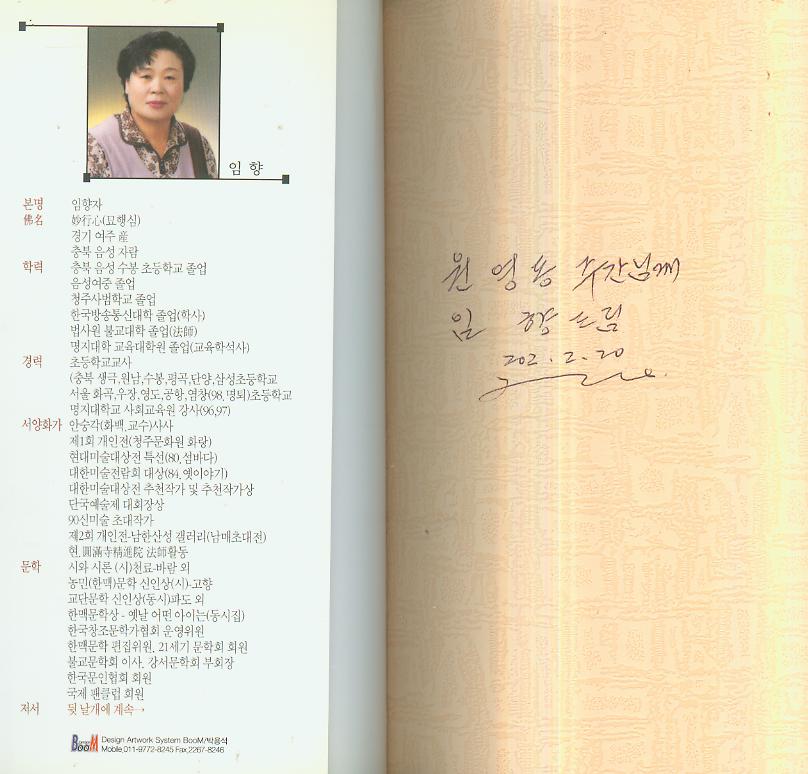 임 향
본명 임향자
佛名 妙行心(묘행심)
경기 여주 産
충북 음성 자람
학력 충북 음성 수봉 초등학교 졸업
음성여중 졸업
청주사범학교 졸업
한국방송통신대학 졸업(학사)
법사원 불교대학 졸업(法師)
명지대학 교육대학원 졸업(교육학석사)
경력 초등학교교사
(충북 생극,원남,수봉,평곡,단양,삼성초등학교
서울 화곡,우장,영도,공항,염창(98,명퇴)초등학교
명지대학교 사회교육원 강사(96,97)
서양화가 안승각(화백,교수)사사
제1회 개인전(청주문화원 화랑)
현대미술대상전 특선(80,섬바다)
대한미술전람회 대상(84,옛이야기)
대한미술대상전 추천작가 및 추천작가상
단국예술제 대회장상
90신미술 초대작가
제2회 개인전-남한산성 갤러리(남매초대전)
현,圓滿寺精進院 法師활동
문학 시와 시론 (시)천료-바람 외
농민(한맥)문학 신인상(시)-고향
교단문학 신인상(동시)파도 외
한맥문학상 - 옛날 어떤 아이는(동시집)
한국창조문학가협회 운영위원
한맥문학 편집위원, 21세기 문학회 회원
불교문학회 이사, 강서문학회 부회장
한국문인협회 회원
국제 팬클럽 회원
저서 뒷 날개에 계속→
BooM Design Artwork System BooM/박용석
Mobile,011-9772-8245 Fax,2267-8246
원 영 용 주간님께
임 향 드림
202. 2. 20